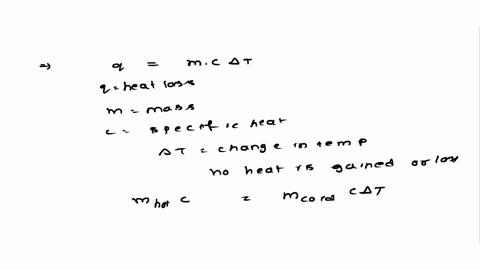 ⇒ q = m.c ΔT
q = heat loss
m = mass
c = specific heat
ΔT = change in temp
no heat is gained or loss
m hot c = m cold c ΔT